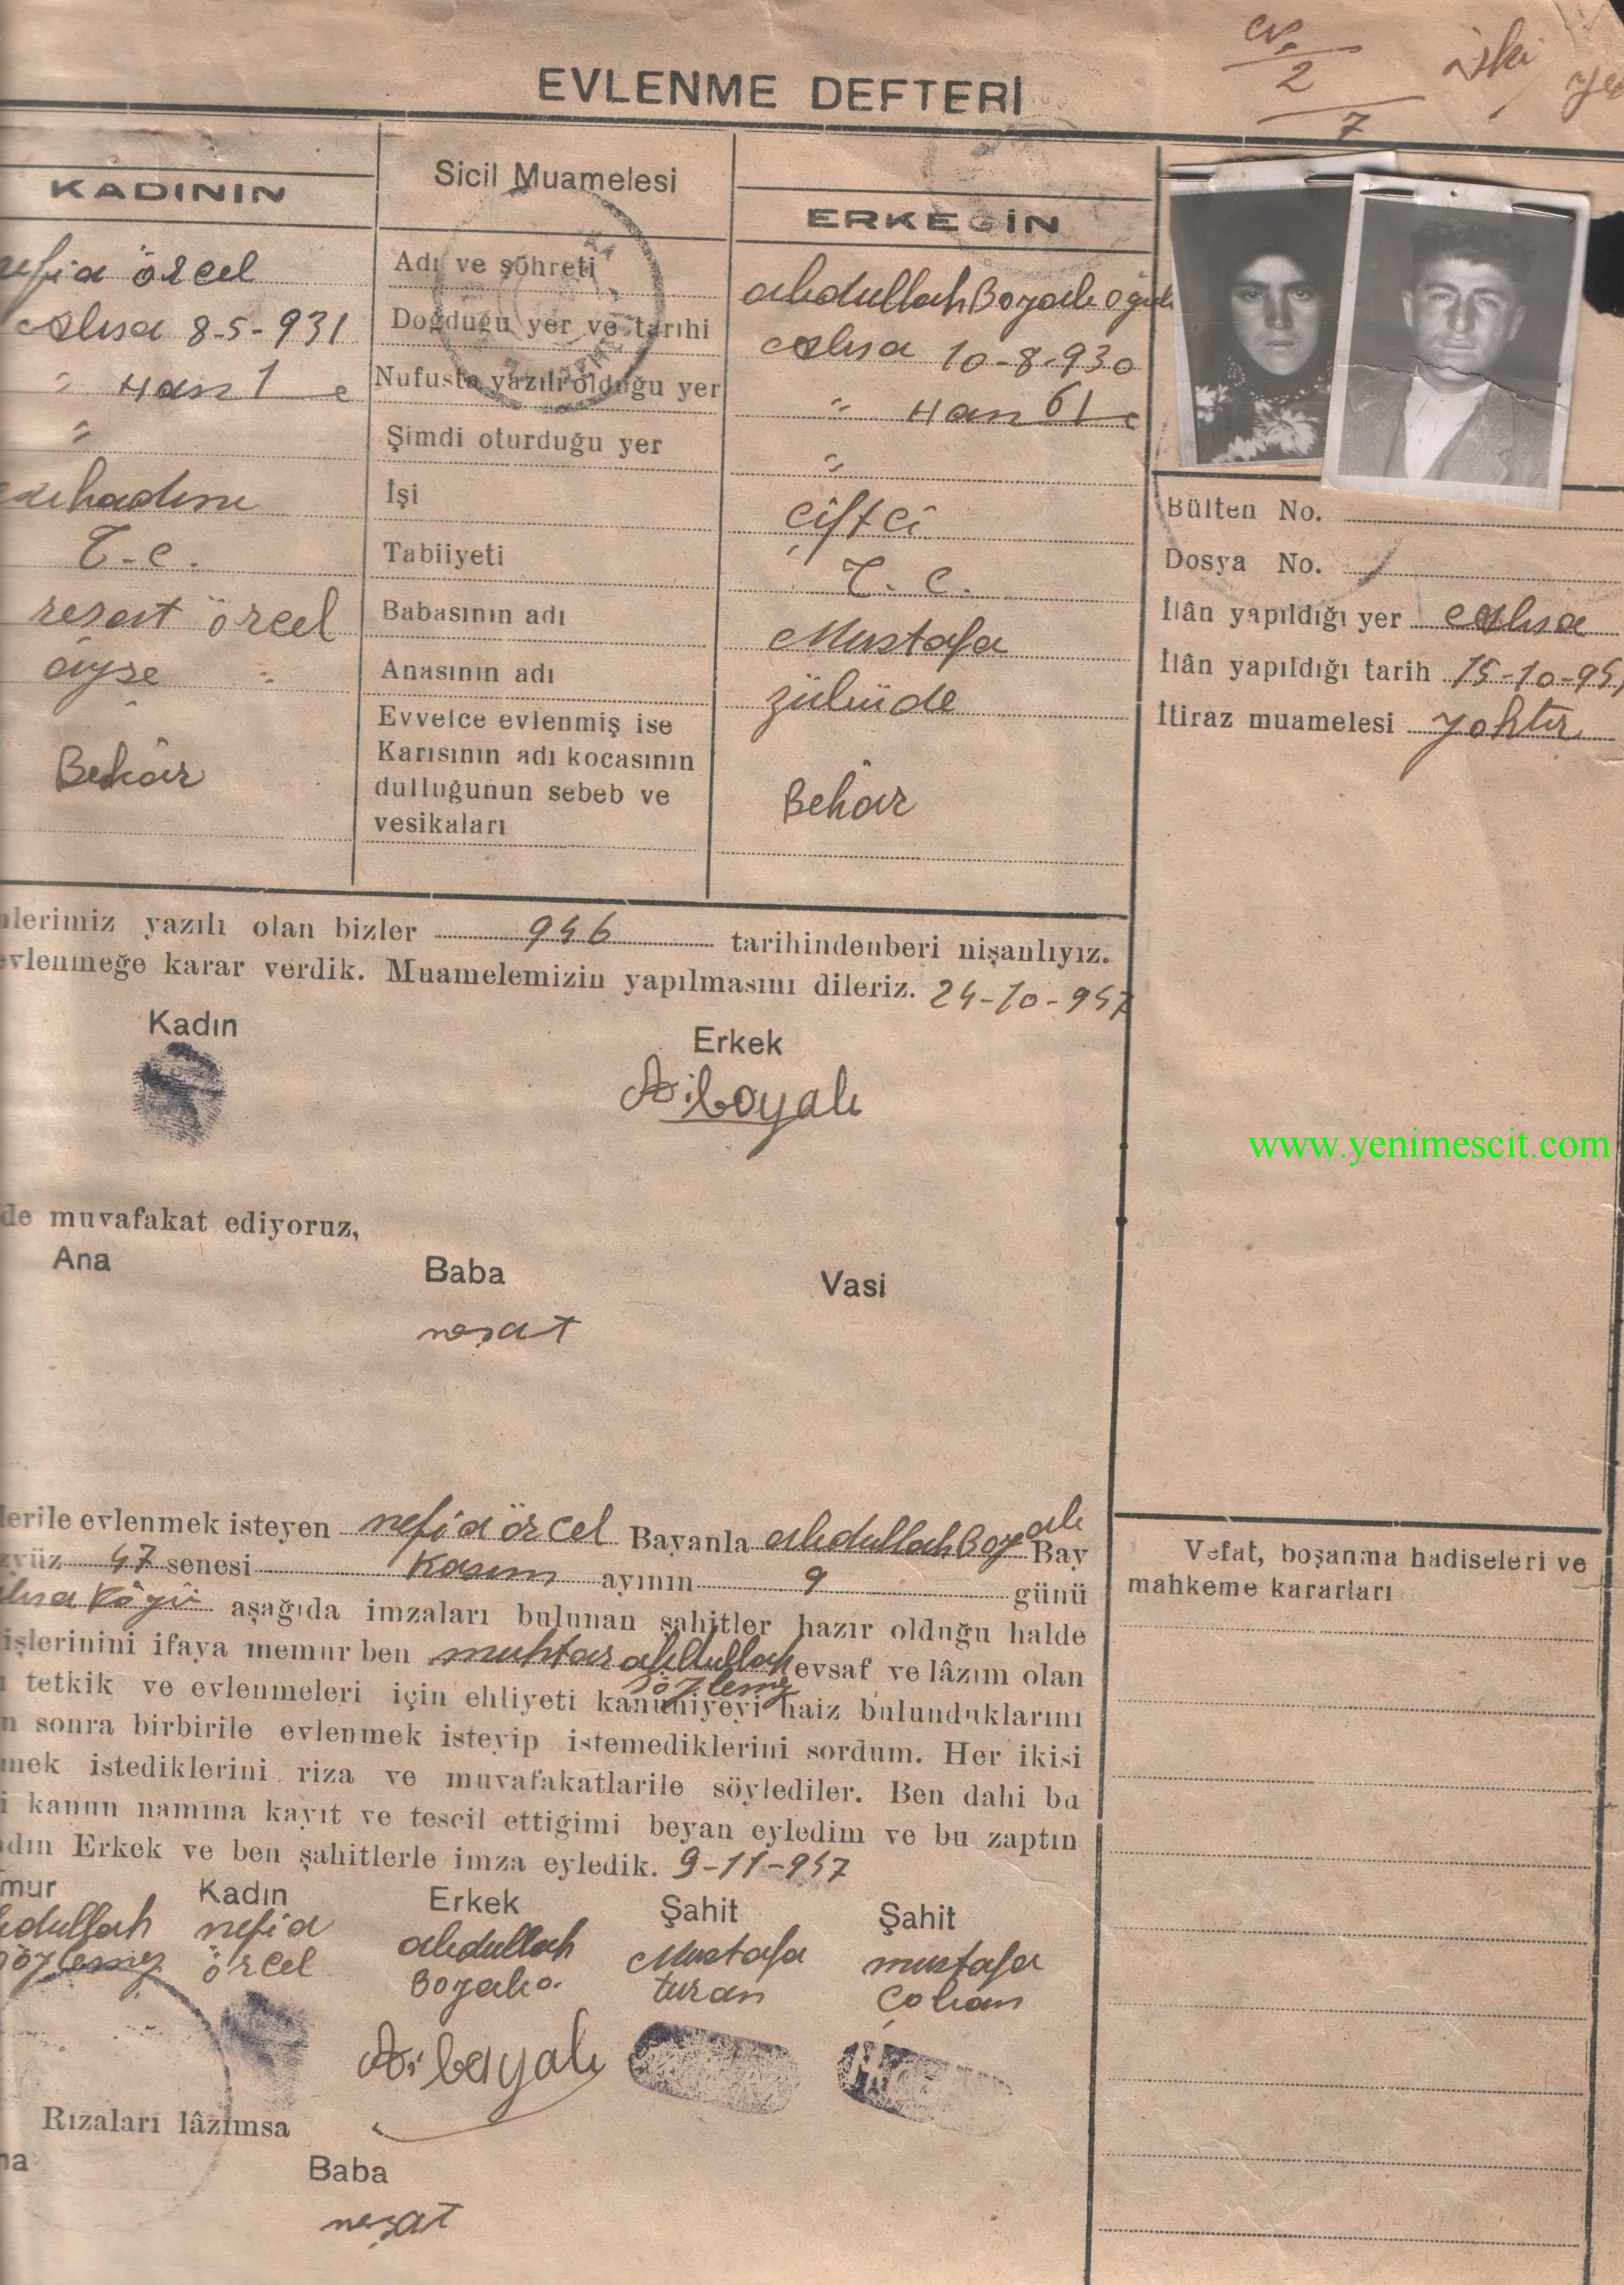 EVLENME DEFTERİ
2
7
KADININ
Sicil Muamelesi
ERKEĞİN
örcel
Adı ve şöhreti
abdullah Boyalı oğlu
8-5-931
Doğduğu yer ve tarihi
10-8-930
" Han 1
Nufusta yazılı olduğu yer
" Han 61
"
Şimdi oturduğu yer
"
İşi
çiftci
T.C.
Tabiiyeti
T.C.
örcel
Babasının adı
Mustafa
ayşe "
Anasının adı
Evvelce evlenmiş ise
Karısının adı kocasının
dulluğunun sebeb ve
vesikaları
Bekâr
Bekâr
Bülten No.
Dosya No.
İlân yapıldığı yer
İlân yapıldığı tarih 15-10-94
İtiraz muamelesi yoktur
lerimiz yazılı olan bizler 946 tarihindenberi nişanlıyız.
evlenmeğe karar verdik. Muamelemizin yapılmasını dileriz. 24-10-947
Kadın
Erkek
boyalı
www.yenimescit.com
de muvafakat ediyoruz,
Ana
Baba
Vasi
neşat
lerile evlenmek isteyen nefia örcel Bayanla abdullah Boyalı Bay
yüz 47 senesi Kasım ayının 9 günü
Köyü aşağıda imzaları bulunan şahitler hazır olduğu halde
işlerinini ifaya memur ben muhtar abdullah sözlemez evsaf ve lâzım olan
tetkik ve evlenmeleri için ehliyeti kanuniyeyi haiz bulunduklarını
n sonra birbirile evlenmek isteyip istemediklerini sordum. Her ikisi
mek istediklerini riza ve muvafakatlarile söylediler. Ben dahi bu
i kanun namına kayıt ve tescil ettiğimi beyan eyledim ve bu zaptın
dın Erkek ve ben şahitlerle imza eyledik. 9-11-947
mur
Kadın
Erkek
Şahit
Şahit
nefia
abdullah
Mustafa
mustafa
örcel
Boyalı o.
turan
çoban
boyalı
Rızaları lâzımsa
na
Baba
neşat
Vefat, boşanma hadiseleri ve
mahkeme kararları